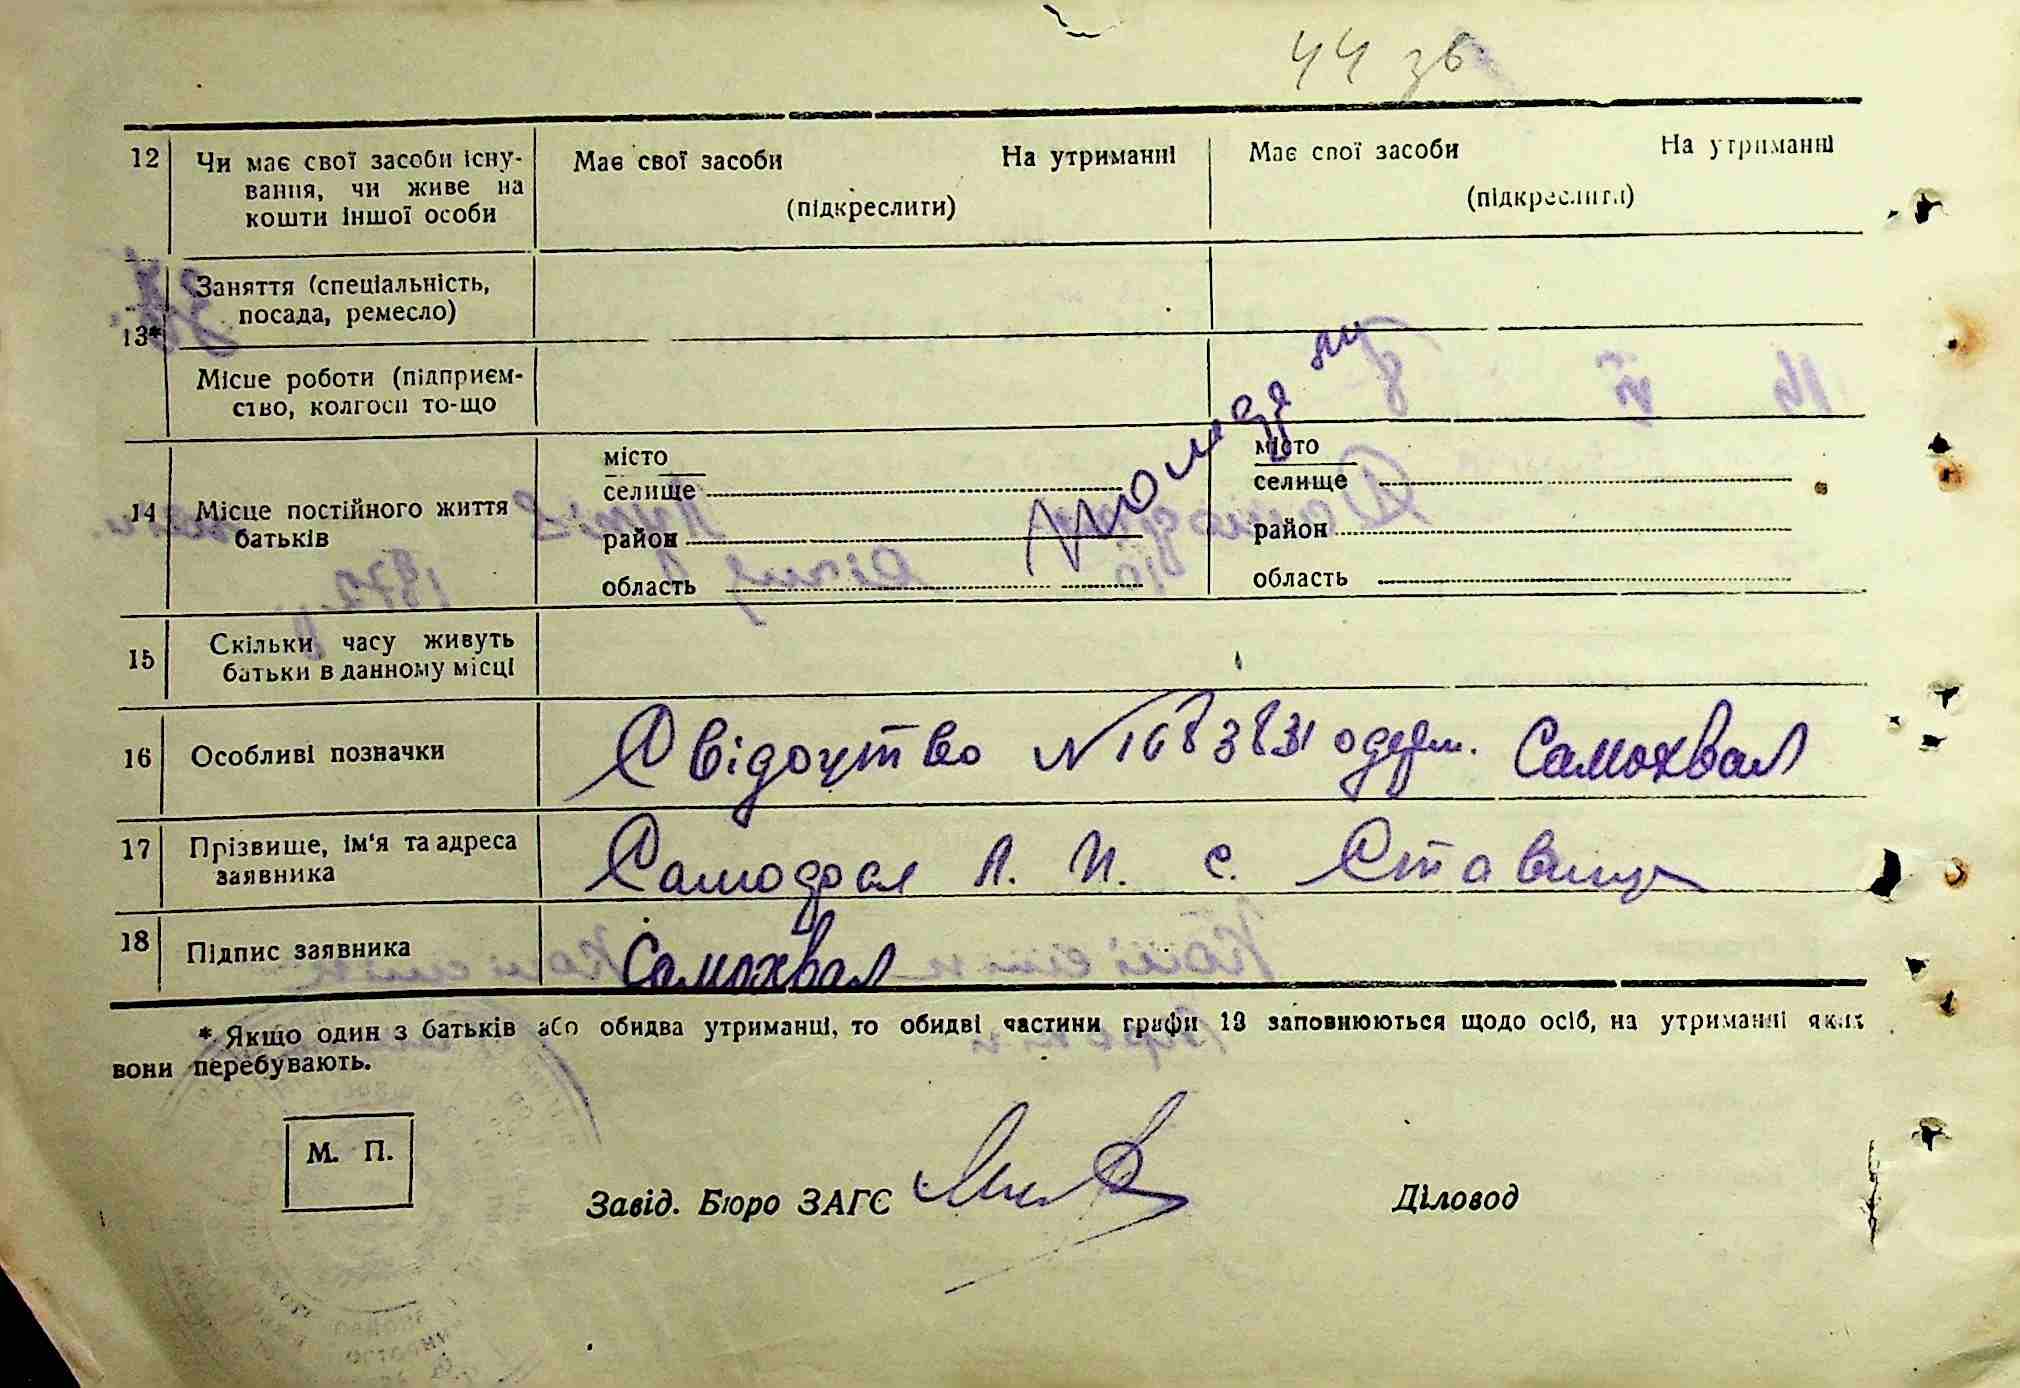 44 зв
12 Чи має свої засоби існу- Має свої засоби На утриманні Має свої засоби На утриманні
вання, чи живе на (підкреслити) (підкреслити)
кошти іншої особи
13* Заняття (спеціальність,
посада, ремесло)
Місце роботи (підприєм-
ство, колгосп то-що
14 Місце постійного життя
батьків
місто
селище
район
область
місто
селище
район
область
15 Скільки часу живуть
батьки в данному місці
16 Особливі позначки Свідоцтво № 1683831 одерж. Самохвал
17 Прізвище, ім'я та адреса
заявника
А. П. с. Ставище
18 Підпис заявника Самохвал
* Якщо один з батьків або обидва утриманці, то обидві частини графи 13 заповнюються щодо осіб, на утриманні яких
вони перебувають.
М. П.
Завід. Бюро ЗАГС Діловод